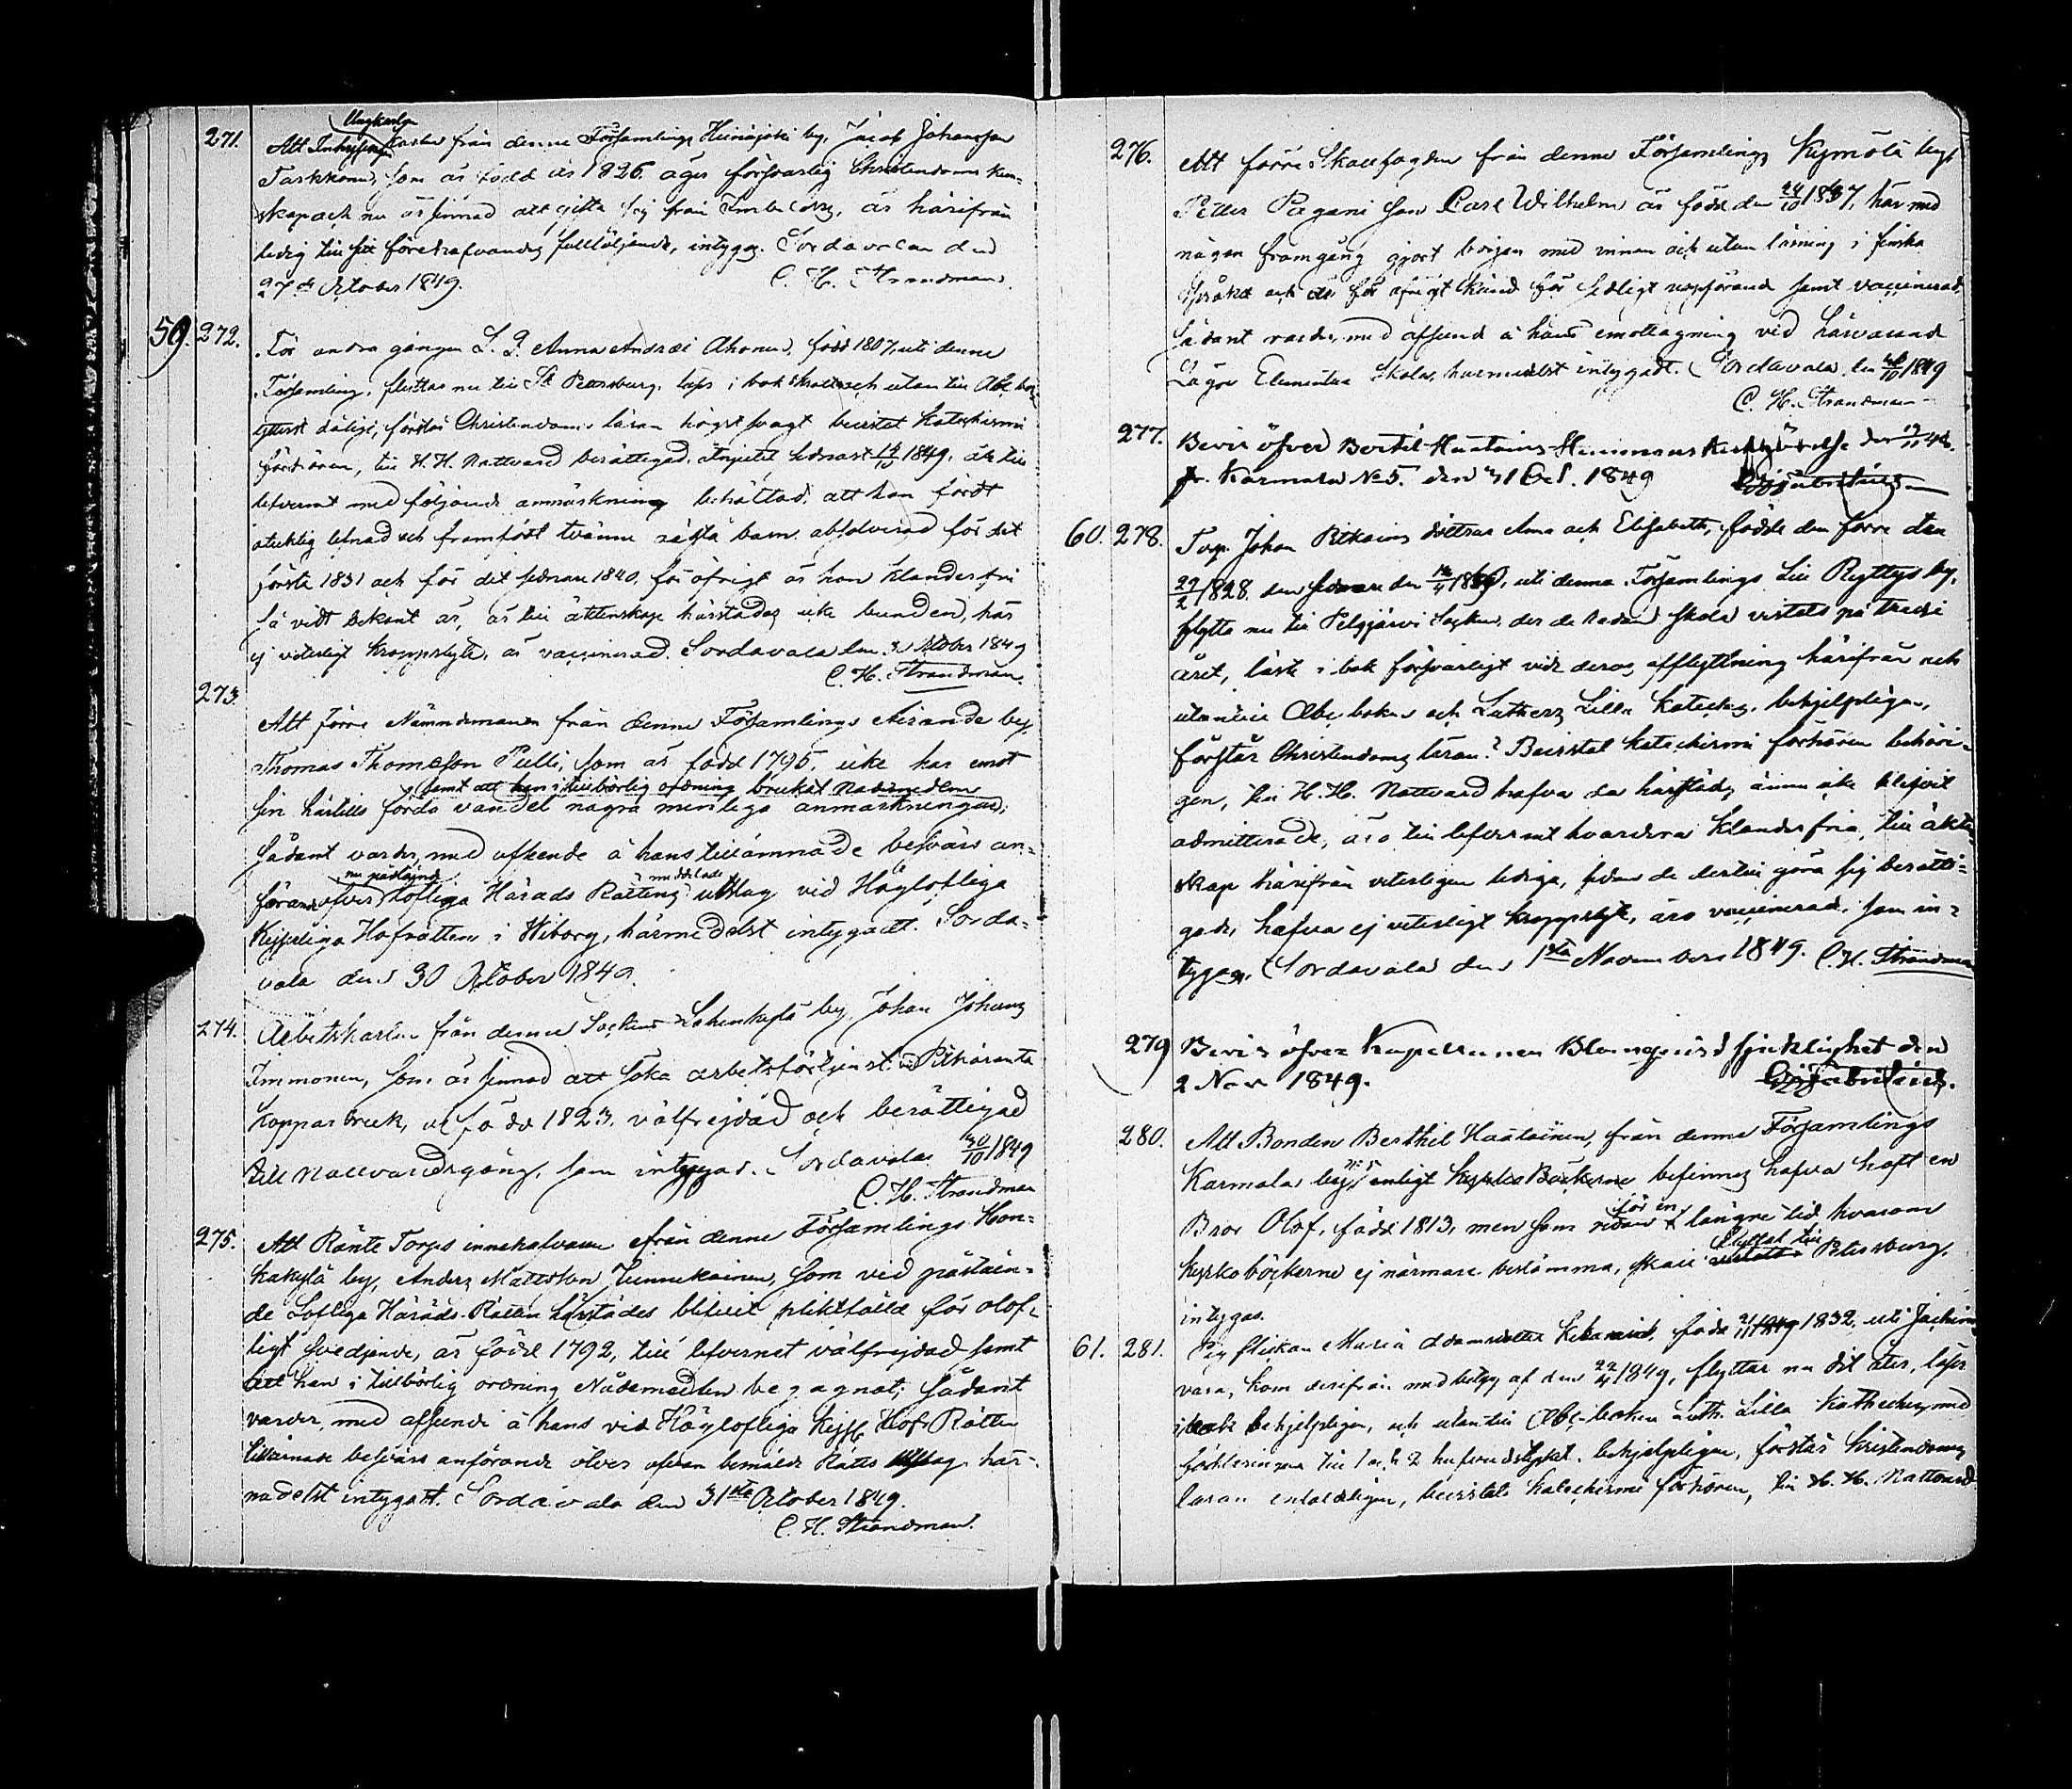 271. Att Inhysing Karlen från denne Församlings Heinäjoki by, Jacob Johansson
Ungkarlen
Tarkkonen, som är född år 1826, äger försvarlig Christendoms kun-
skap och nu är sinnad att gifta sig från Imbilax, är härifrån
ledig till sitt förehafvandes fullföljande, intygas. Sordavala den
27de October 1849. C. H. Strandman.
59. 272. För andra gången L. P. Anna Andrae Ahonen, född 1807, uti denne
Församling, flyttar nu till St Petersburg, läser i bok och utan till Abc boken
ytterst dåligt, förstår Christendoms läran högst svagt bevistat Katechismi
förhören, till H. H. Nattvard berättigad, åtnjutit sednast 14/10 1849, är till
lefvernet med följande anmärkning behäftad, att hon fördt
otuktig lefnad och framfödt tvänne oäkta barn, absolverad för det
första 1831 och för det sednare 1840, för öfrigt är hon klanderfri
så vidt bekant är, är till äktenskap härstädes icke bunden, har
ej veterligt kroppslyte, är vaccinerad. Sordavala den 30 October 1849
C. H. Strandman.
273. Att förre Nämndemannen från denne Församlings Airanda by,
Thomas Thomasson Pulli, som är född 1795, icke har emot
samt att han i tillbörlig ordning brukat Nådemedlen
sin härtills förda vandel några menliga anmärkningar;
Sådant varder, med afseende å hans tillämnade besvärs an-
nu påstående meddelade
förande öfver Lofliga Härads Rättens utslag vid Höglofliga
Kejserliga Hofrätten i Wiborg, härmedelst intygadt. Sorda-
vala den 30 October 1849.
274. Arbetskarlen från denne Socken Lahenkylä by, Johan Johansson
Immonen, som är sinnad att söka arbetsförtjenst i Pitkäranta
kopparbruk, är född 1823, välfrejdad och berättigad
till Nattvardsgång, som intygas. Sordavala 30/10 1849
C. H. Strandman
275. Att Ränte Torps innehafvaren från denne Församlings Hon-
kakylä by, Anders Mattsson Junnukainen, som vid påståen-
de Lofliga Härads-Rätten härstädes blifvit pliktfälld för olof-
ligt svedjande, är född 1792, till lefvernet välfrejdad samt
att han i tillbörlig ordning Nådemedlen begagnat; Sådant
varder, med afseende å hans vid Höglofliga Kejs. Hof Rätten
tillämnade besvärs anförande öfver ofvan bemälde Rätts utslag här-
medelst intygadt. Sordavala den 31sta October 1849.
C. H. Strandman.
276. Att förre Skallfogden från denne Församlings Kymölä by,
Petter Pagani son Carl Wilhelm är född den 24/10 1837, har med
någon framgång gjort början med innan och utan läsning i finska
Språket och är för öfrigt känd för sedligt uppförande samt vaccinerad,
Sådant varder, med afseende å hans emottagning vid härvarande
Lägre Elementar Skola, härmedelst intygadt. Sordavala, den 1849
C. H. Strandman
277. Bevis öfver Bertil Haatains Hemmans den 12/11 48.
fr. Karmala No 5. den 31 Oct. 1849
60. 278. Torp. Johan Pitkäins döttrar Anna och Elisabeth, födde den förre den
29/2 1828 den sednare den 1830, uti denna Församlings Lill Ryttys by,
flytta nu till Pelgjärvi Socken, der de redan skola vistats på tredje
året, läste i bok försvarligt vid deras afflyttning härifrån och
utantill Abc boken och Luthers Lilla Kateches, behjelpligen,
förstår Christendoms läran? Bevistat Katechismi förhören behöri-
gen, till H. H. Nattvard hafva de härstädes ännu icke blifvit
admitterade, äro till lefvernet hvardera klanderfria, till äkten-
skap härifrån veterligen lediga, sedan de dertill göra sig berätti-
gade, hafva ej veterligt kroppslyte, äro vaccinerade, som in-
tygas. Sordavala den 1sta November 1849. C. H. Strandman
279 Bevis öfver Kapellanen Blomqvists sjuklighet den
2 Nov 1849.
280. Att Bonden Berthil Haatainen, från denna Församlings
Karmala by, No 5 enligt Kyrko Böckerne befinnes hafva haft en
för en
Bror Olof, född 1813, men som redan längre tid hvarom
flyttat till
kyrkoböckerne ej närmare bestämma, skall Petersburg,
intygas.
61. 281. Pig flickan Maria Adamsdotter född 1832, uti Jackim-
vara, kom derifrån med betyg af den 22/4 1849, flyttar nu dit åter, läser
i bok behjelpligen, och utantill Abc-boken Luth. Lilla Kathechesen med
förklaringen till 1 och 2 hufvudstycket, behjelpligen, förstår kristendoms
läran enfaldigen, bevistat Katechismi förhören, till H. H. Nattvard